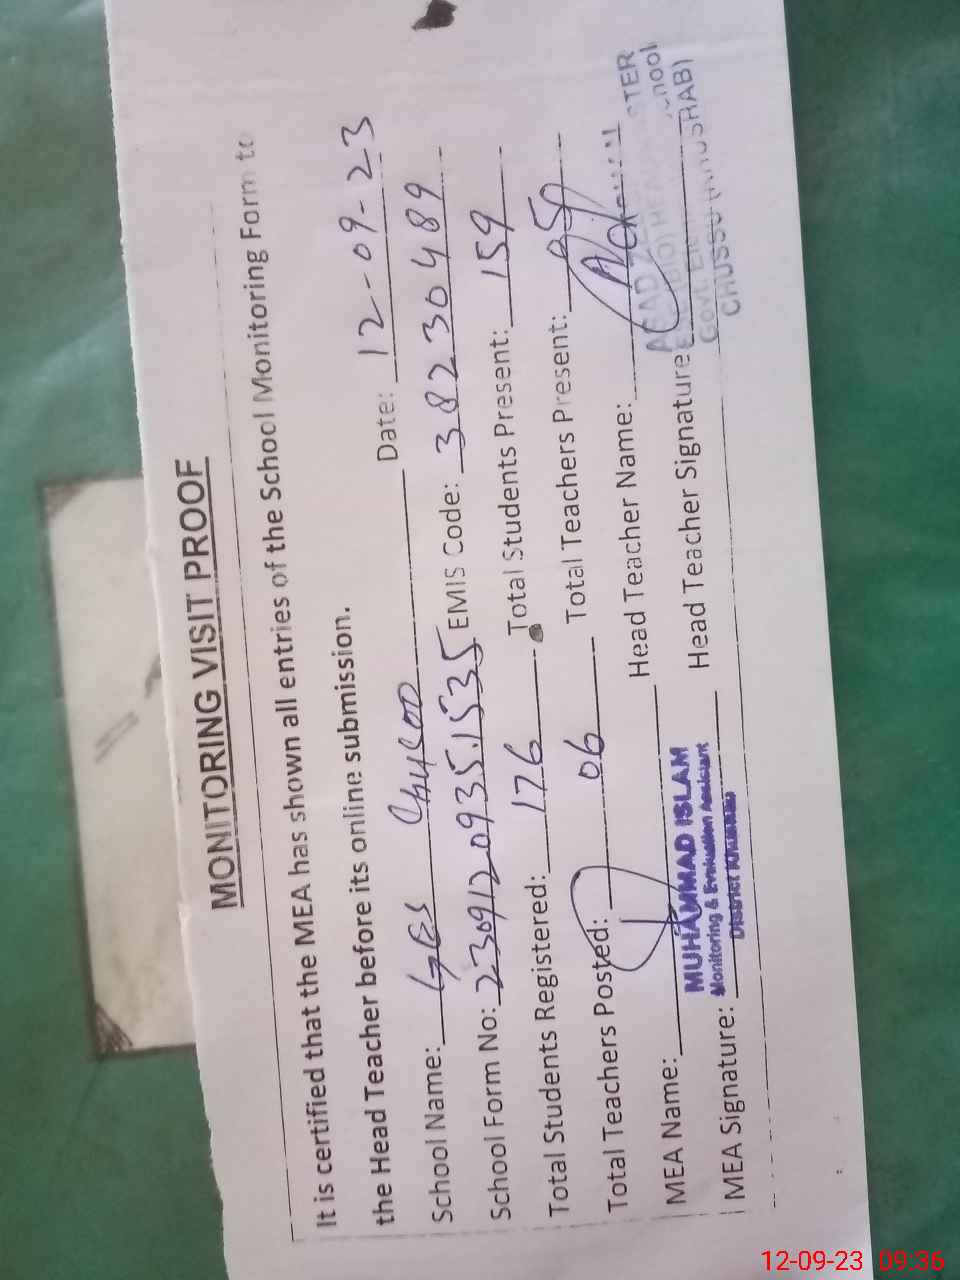 MONITORING VISIT PROOF
It is certified that the MEA has shown all entries of the School Monitoring Form to
the Head Teacher before its online submission.
School Name: GES Chusoo Date: 12-09-23
School Form No: 23091209351535 EMIS Code: 38230489
Total Students Registered: 176 Total Students Present: 159
Total Teachers Posted: 06 Total Teachers Present:
MEA Name: Head Teacher Name:
MUHAMMAD ISLAM
Monitoring & Evaluation Assistant
District
MEA Signature: Head Teacher Signature
Govt.
12-09-23 09:36